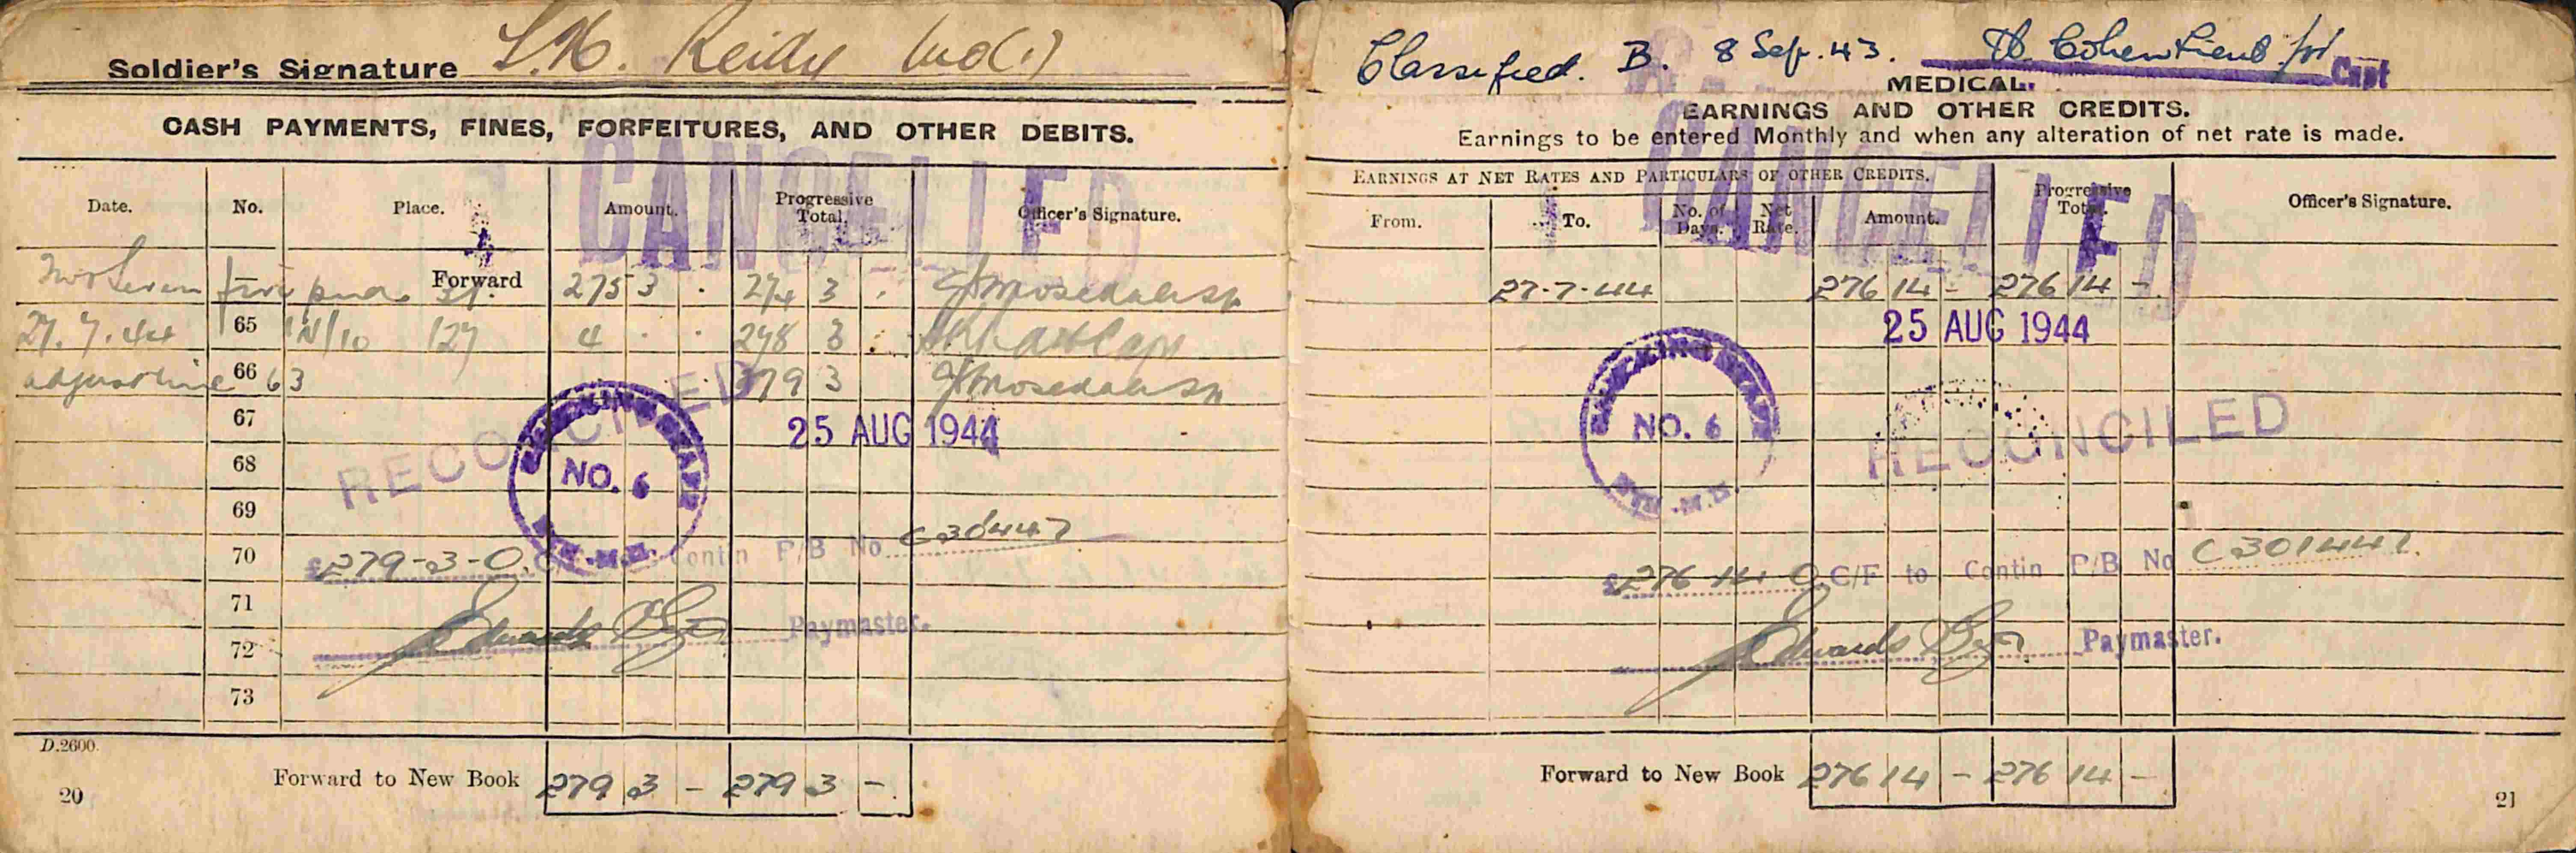 Soldier's Signature L.H. Reidy WO(1)
CASH PAYMENTS, FINES, FORFEITURES, AND OTHER DEBITS.
CANCELLED
Date. No. Place. Amount. Progressive Total. Officer's Signature.
Two Seven five pnds 3/. Forward 275 3 . 274 3 .
27.7.44 65 127 4 . . 278 3 .
66 63 279 3
67
25 AUG 1944
RECONCILED
68
NO. 6
69
70 £279-3-0. Contin P/B No C301447
71
72 Edwards Paymaster.
73
D.2600.
Forward to New Book 279 3 - 279 3 -
20
Classified. B. 8 Sep. 43. Cohen Lieut for Capt
MEDICAL.
EARNINGS AND OTHER CREDITS.
Earnings to be entered Monthly and when any alteration of net rate is made.
CANCELLED
EARNINGS AT NET RATES AND PARTICULARS OF OTHER CREDITS. Progressive Total. Officer's Signature.
From. To. No. of Days. Net Rate. Amount.
27-7-44 276 14 - 276 14 -
25 AUG 1944
NO. 6
RECONCILED
£276 14 0 C/F to Contin P/B No C301447.
Edwards Paymaster.
Forward to New Book 276 14 - 276 14 -
21